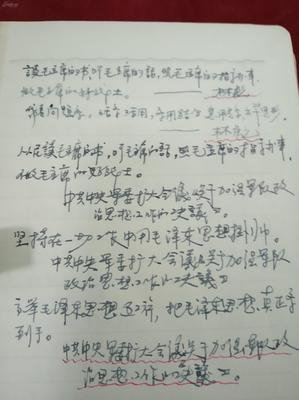 读毛主席的书,听毛主席的话,照毛主席的指示办事,
做毛主席的好战士。
—— 林彪
带着问题学,活学活用,学用结合,急用先学,立竿见影,
——林彪
人人定读毛主席的书,听毛主席的话,照毛主席的指示办事,
做毛主席的好战士。
中共中央军委扩大会议关于加强军队政
治思想工作的决议》
坚持在一切工作中用毛泽东思想挂帅。
中共中央军委扩大会议关于加强军队
政治思想工作的决议》
高举毛泽东思想红旗,把毛泽东思想真正学
到手。
中共中央军委扩大会议关于加强军队政
治思想工作的决议》。